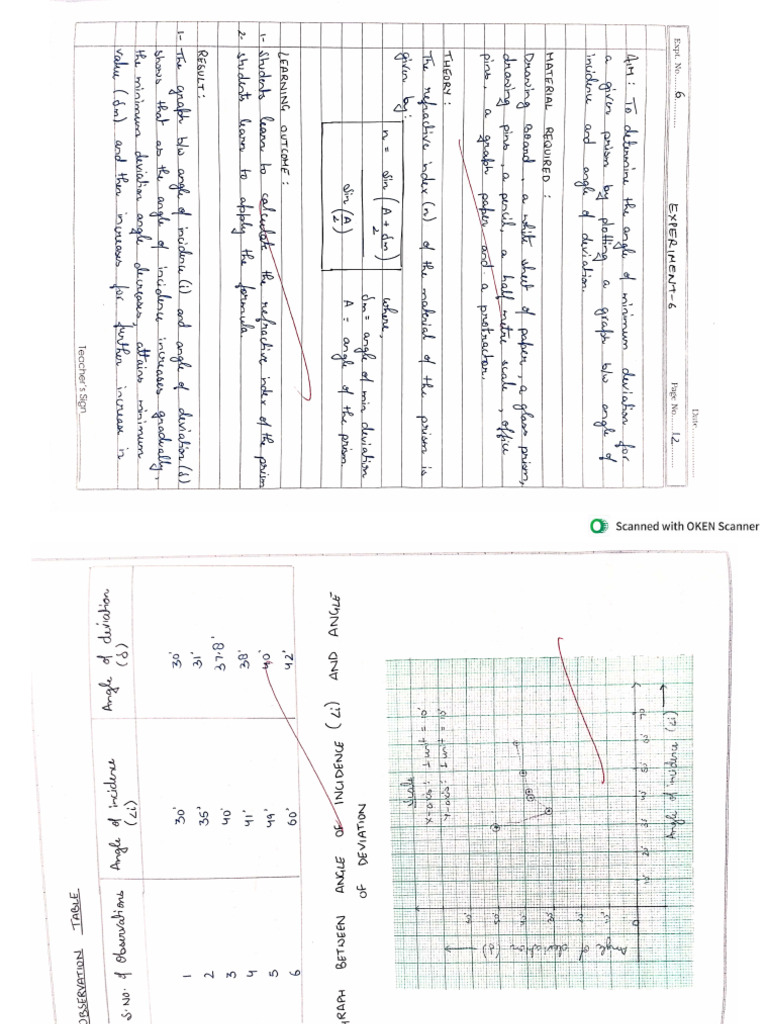 Date
Expt. No. 6
Page No. 12
EXPERIMENT-6
AIM: To determine the angle of minimum deviation for
a given prism by plotting a graph b/w angle of
incidence and angle of deviation.
MATERIAL REQUIRED:
Drawing Board, a white sheet of paper, a glass prism,
drawing pins, a pencil, a half metre scale, office
pins, a graph paper and a protractor.
THEORY:
The refractive index (n) of the material of the prism is
given by:
n = sin (A + δm / 2)
sin (A/2)
where,
δm = angle of min deviation
A = angle of the prism
LEARNING OUTCOME:
1- Students learn to calculate the refractive index of the prism
2- Students learn to apply the formula.
RESULT:
1- The graph b/w angle of incidence (i) and angle of deviation (δ)
shows that as the angle of incidence increases gradually,
the minimum deviation angle decreases, attains minimum
value (δm) and then increases for further increase in
Teacher's Sign
Scanned with OKEN Scanner
OBSERVATION TABLE
S.NO. of Observations Angle of incidence (∠i) Angle of deviation (δ)
1 30° 30°
2 35° 31°
3 40° 37.8°
4 41° 38°
5 49° 40°
6 60° 42°
GRAPH BETWEEN ANGLE OF INCIDENCE (∠i) AND ANGLE
OF DEVIATION
Angle of incidence (∠i)
Angle of deviation (δ)
Scale
x-axis: 1 unit = 10°
y-axis: 1 unit = 10°